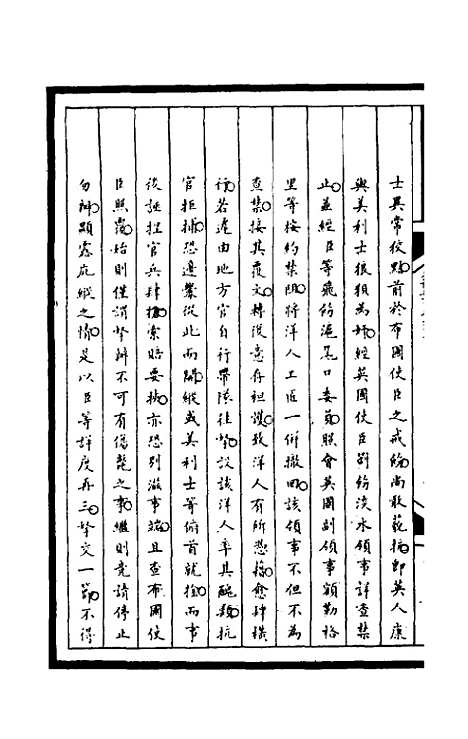 士異常狡黠前於布國使臣之戒飭尚敢藐抗即英人康
與美利士狼狽為奸經英國使臣劄飭淡水領事詳查禁
止並經臣等飛飭滬尾口委員照會英國副領事額勒格
里等按約禁阻將洋人工匠一併撤回該領事不但不為
查禁接其覆文轉復意存袒護致洋人有所恐藉愈肆橫
行若遽由地方官自行帶隊往拏設該洋人率其醜類抗
官拒捕恐邊釁從此而開縱或美利士等俯首就擒而事
後誣捏官兵肆搶索賠要挾亦恐別滋事端且查布國使
臣照覆始則僅謂拏辦不可有傷斃之事繼則竟請停止
勿辦顯露庇縱之情是以臣等詳度再三拏交一節不得